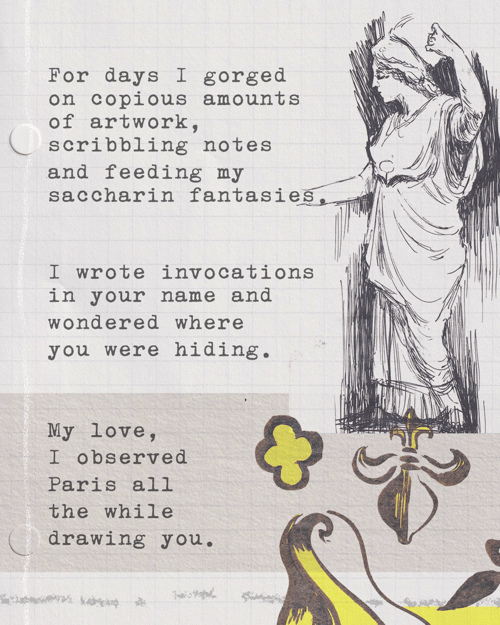 For days I gorged
on copious amounts
of artwork,
scribbling notes
and feeding my
saccharin fantasies.
I wrote invocations
in your name and
wondered where
you were hiding.
My love,
I observed
Paris all
the while
drawing you.